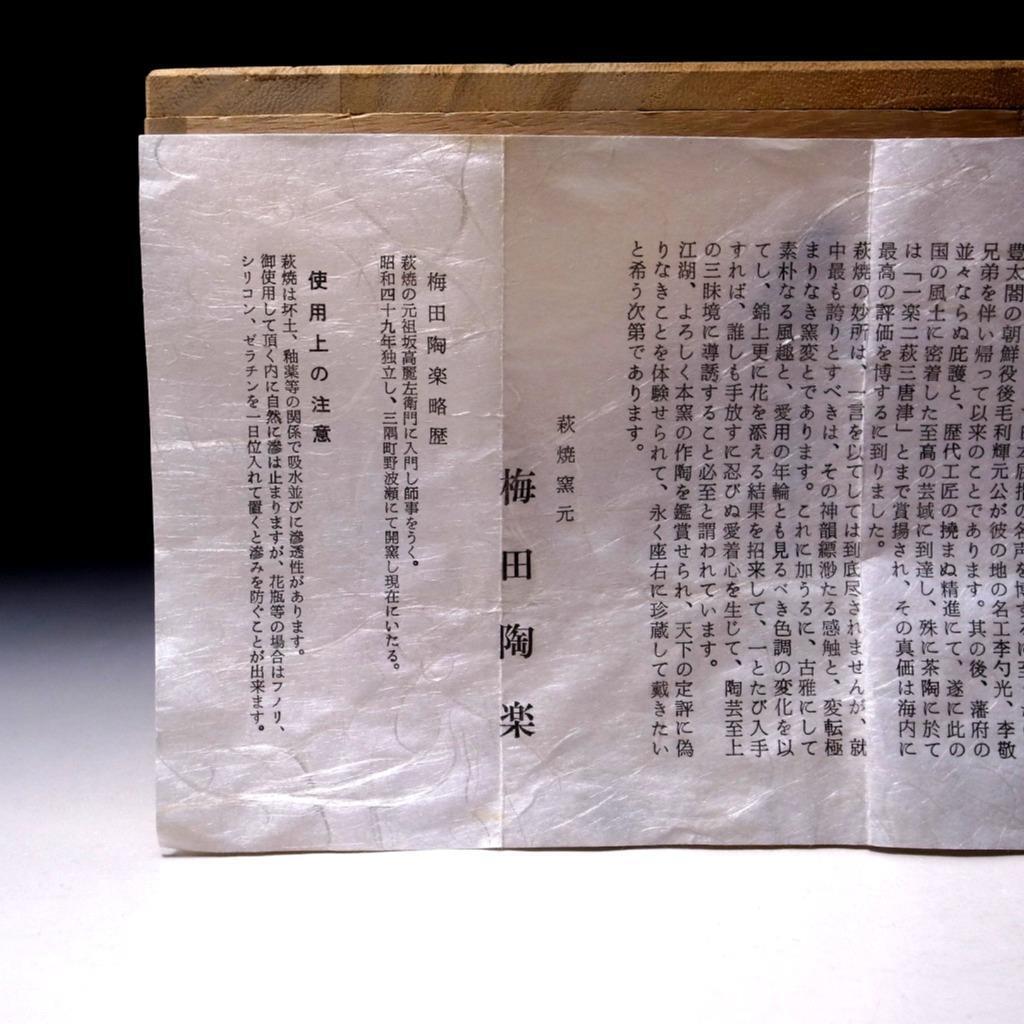 豊太閤の朝鮮役後毛利輝元公が彼の地の名工李勺光、李敬
兄弟を伴い帰って以来のことであります。其の後、藩府の
並々ならぬ庇護と、歴代工匠の撓まぬ精進にて、遂に此の
国の風土に密着した至高の芸域に到達し、殊に茶陶に於て
は「一楽二萩三唐津」とまで賞揚され、その真価は海内に
最高の評価を博するに到りました。
萩焼の妙所は、一言を以てしては到底尽されませんが、就
中最も誇りとすべきは、その神韻縹渺たる感触と、変転極
まりなき窯変とであります。これに加うるに、古雅にして
素朴なる風趣と、愛用の年輪とも見るべき色調の変化を以
てし、錦上更に花を添える結果を招来して、一とたび入手
すれば、誰しも手放すに忍びぬ愛着心を生じて、陶芸至上
の三昧境に導誘すること必至と謂われています。
江湖、よろしく本窯の作陶を鑑賞せられ、天下の定評に偽
りなきことを体験せられて、永く座右に珍蔵して戴きたい
と希う次第であります。
萩焼窯元
梅田陶楽
梅田陶楽略歴
萩焼の元祖坂高麗左衛門に入門し師事をうく。
昭和四十九年独立し、三隅町野波瀬にて開窯し現在にいたる。
使用上の注意
萩焼は坏土、釉薬等の関係で吸水並びに滲透性があります。
御使用して頂く内に自然に滲は止まりますが、花瓶等の場合はフノリ、
シリコン、ゼラチンを一日位入れて置くと滲みを防ぐことが出来ます。